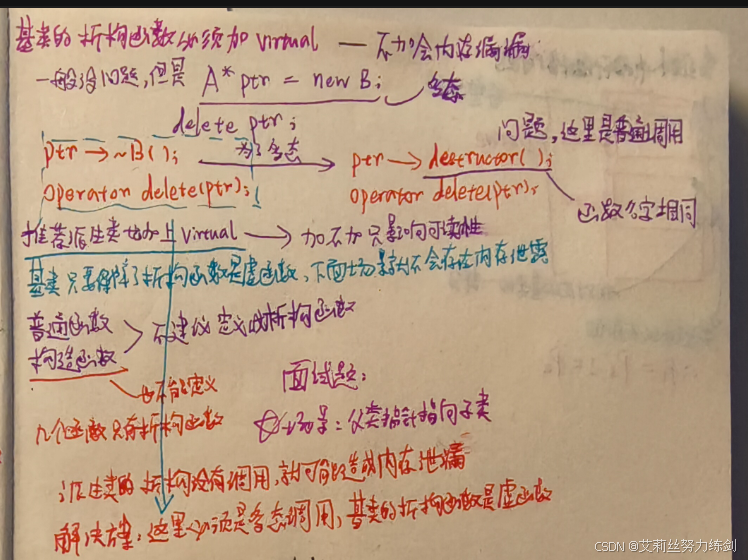 基类的析构函数必须加virtual — 不加会内存泄漏
一般没问题,但是 A* ptr = new B; 多态
delete ptr;
问题,这里是普通调用
ptr → ~B(); 为了多态 → ptr → destructor();
operator delete(ptr); operator delete(ptr);
函数名字相同
推荐派生类也加上virtual → 加不加只影响可读性
基类只要保障了析构函数是虚函数,下面场景就不会存在内存泄露
普通函数
构造函数 > 不建议定义成析构函数
也不能定义
面试题:
几个函数只有析构函数
场景:父类指针指向子类
派生类的析构没有调用,就可能造成内存泄漏
解决方案:这里必须是多态调用,基类的析构函数是虚函数
CSDN @艾莉丝努力练剑